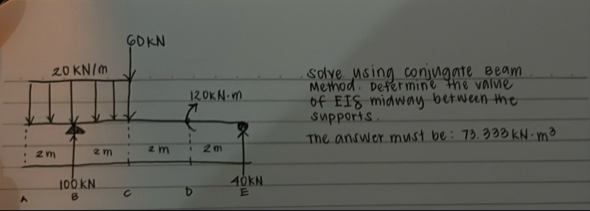 60KN
20 KN/m
120KN·m
2m 2m 2m 2m
100KN 40KN
A B C D E
solve using conjugate Beam
Method. Determine the value
of EIδ midway between the
supports.
The answer must be: 73.333 kN·m³